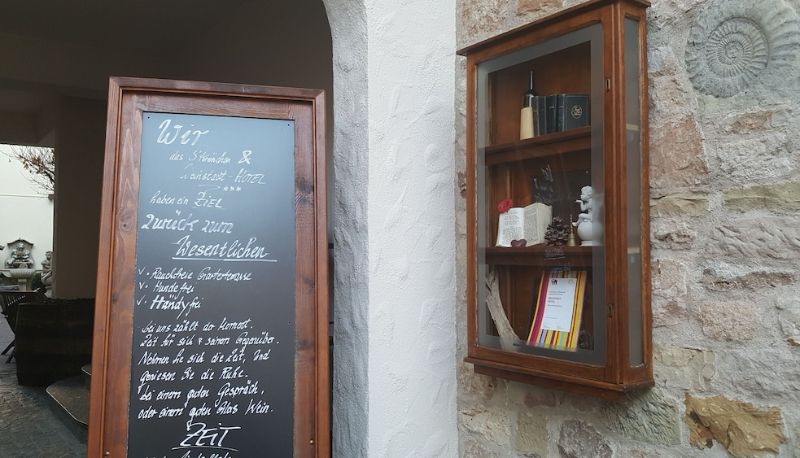 Wir
das Sträußchen &
Weinstadt-HOTEL
haben ein ZIEL
Zurück zum
Wesentlichen
✓ • Rauchfreie Gartenterrasse
✓ • Hundefrei
✓ • Handyfrei
bei uns zählt der Moment.
Zeit für sich & seinem Gegenüber.
Nehmen Sie sich die Zeit, und
genießen Sie die Ruhe.
bei einem guten Gespräch,
oder einem guten Glas Wein.
ZEIT